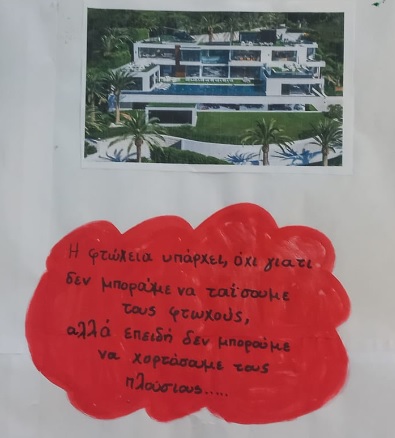 Η φτώχεια υπάρχει, όχι γιατί
δεν μποράμε να ταΐσουμε
τους φτωχούς,
αλλά επειδή δεν μπορούμε
να χορτάσαμε τους
πλούσιους.....